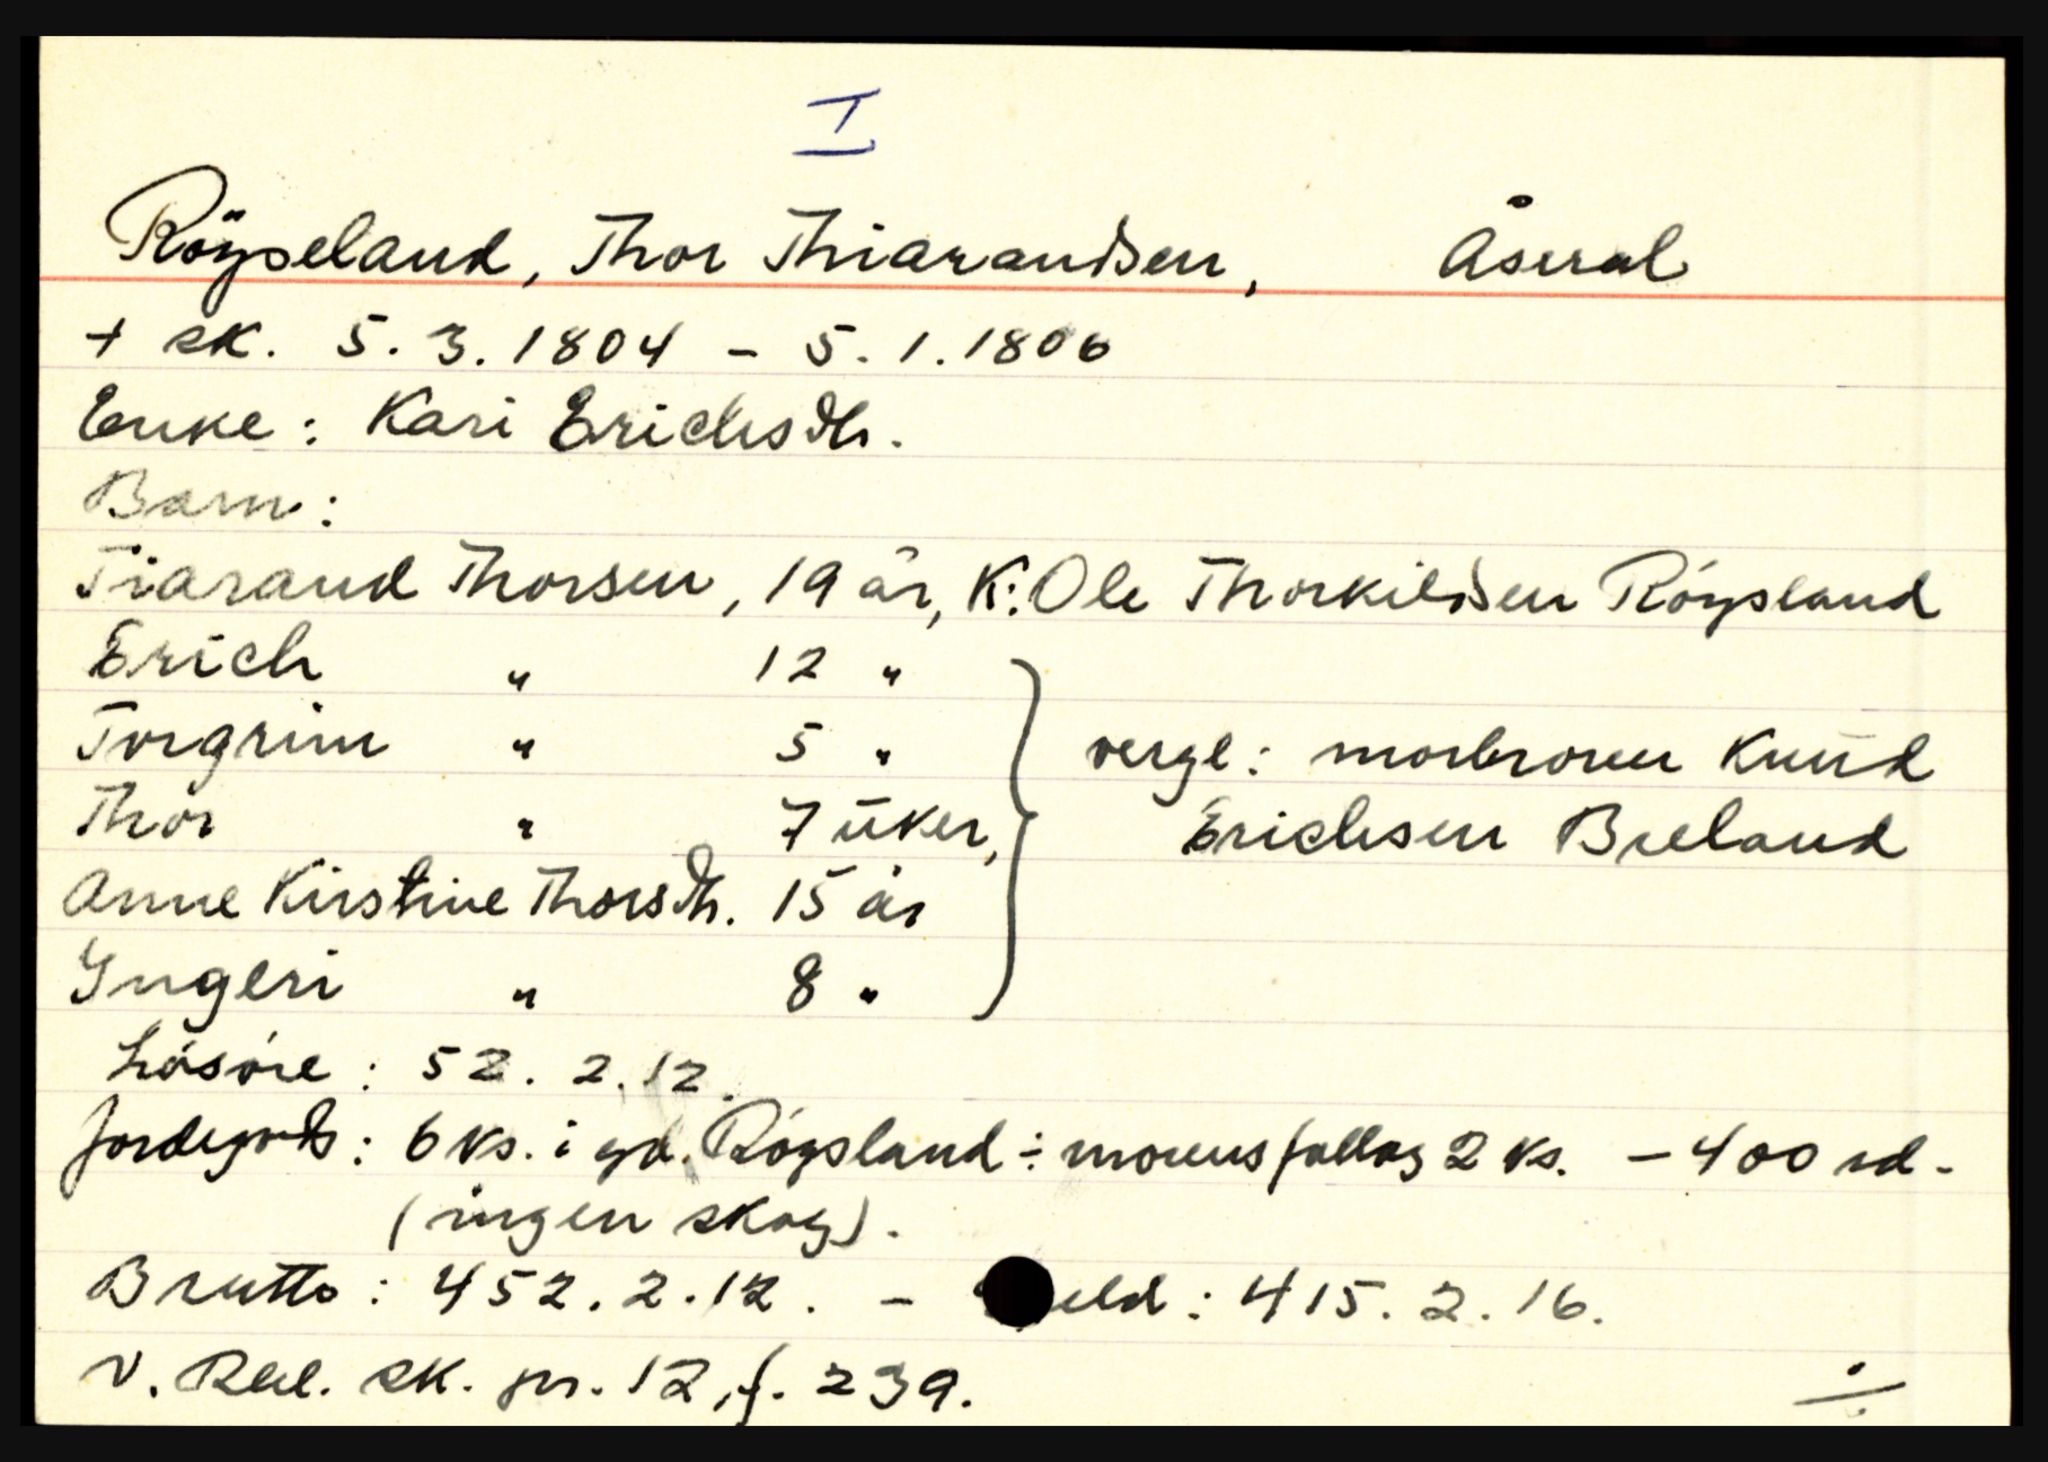 I
Röyseland, Thor Thiarandsen, Åseral
+ sk. 5.3.1804 - 5.1.1806
Enke: Kari Erichsdtr.
Barn:
Tiarand Thorsen, 19 år, K: Ole Thorkildsen Röysland
Erich " 12 "
Torgrim " 5 " verge: morbroren Knud
Thor " 7 uker, Erichsen Breland
Anne Kirstine Thorsdtr. 15 år
Yngeri " 8 "
Lösöre: 52. 2. 12.
Jordegods: 6 ks. i gd. Röysland ÷ morens 2 ks. - 400 rd.
(ingen skog).
Brutto: 452. 2. 12. - eld: 415. 2. 16.
V. Råb. sk. pr. 12, f. 239.
÷